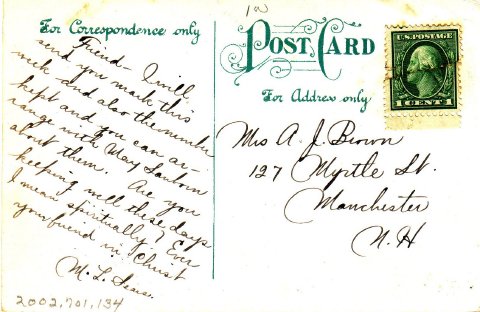 1w
For Correspondence only
POST CARD
For Address only
U.S. POSTAGE
1 CENT 1
Friend- I will
send you mark this
week and also the number
kept and you can ar-
range with May Sanborn
about them. Are you
keeping well these days
I mean spiritually? Ever
your friend in Christ
M. L.
Mrs A. J. Brown
127 Myrtle St.
Manchester
N.H
2002,701,134